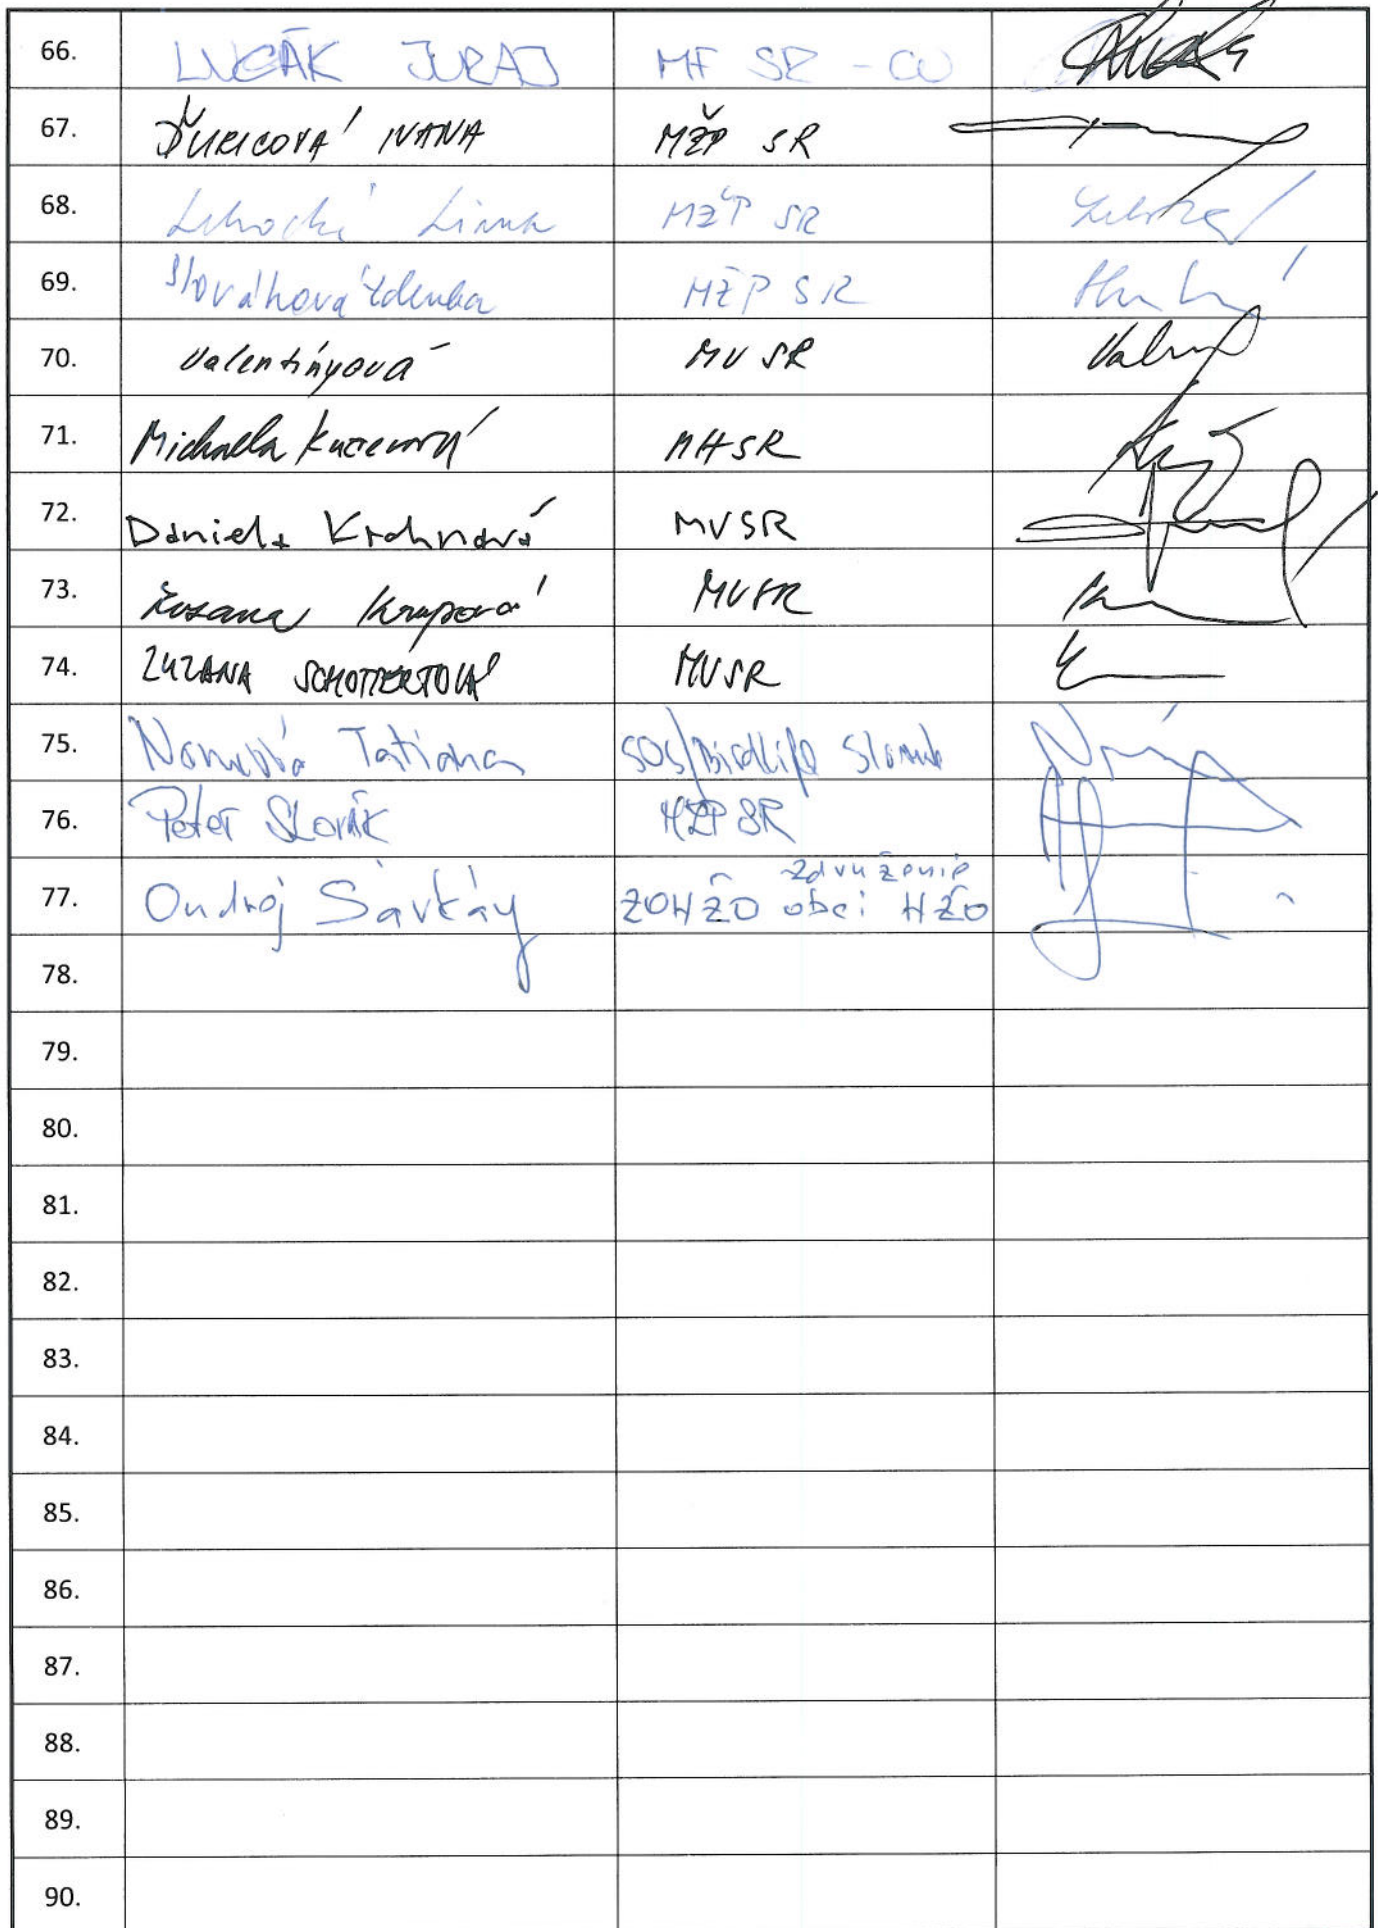 66. LUČÁK JURAJ MF SR - CO
67. ĎURICOVÁ IVANA MŽP SR
68. MŽP SR
69. Slováková Zdenka MŽP SR
70. Valentínyová MV SR
71. Michaela MH SR
72. Daniela Krahnová MVSR
73. Zuzana Krupová MVSR
74. ZUZANA SCHOTTERTOVÁ MVSR
75. Tatiana SOS/Birdlife Slovak
76. Peter Slovák MŽP SR
77. Ondrej Sárkány ZOHŽO združenie obcí HŽO
78.
79.
80.
81.
82.
83.
84.
85.
86.
87.
88.
89.
90.